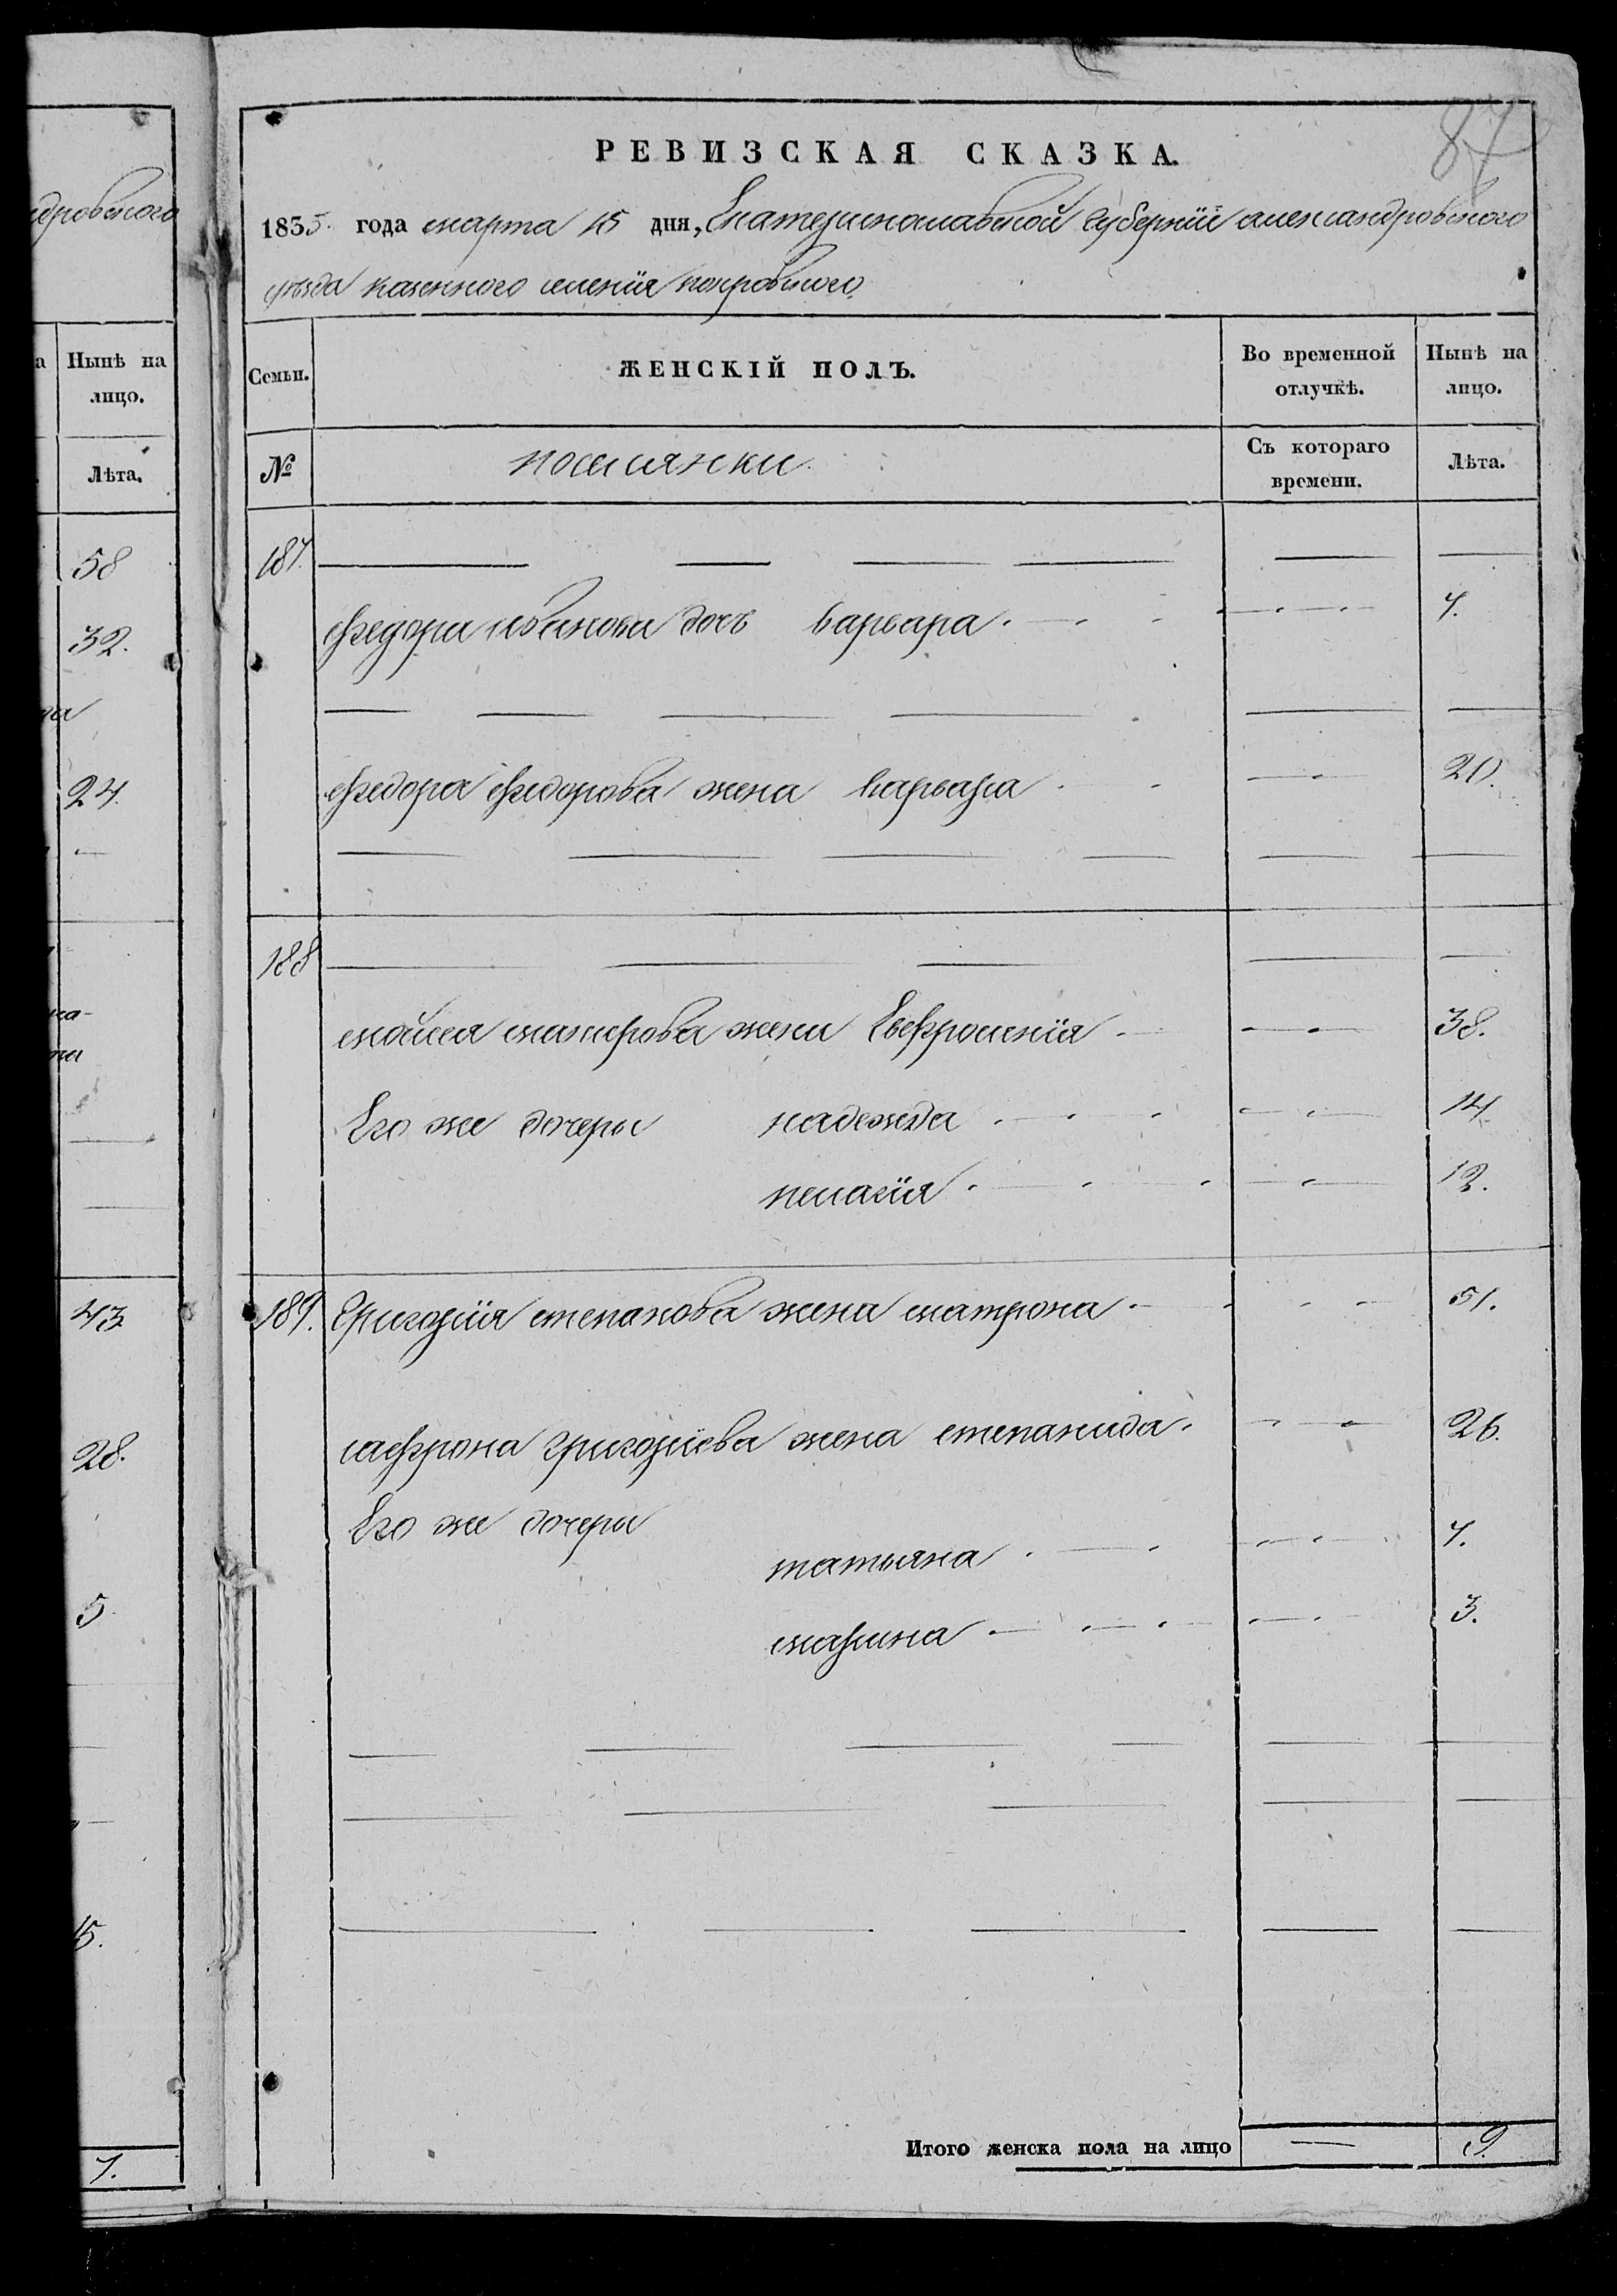 дровского
Нынѣ на
лицо.
Лѣта.
58
32.
24.
43
28.
5
15.
7.
87
РЕВИЗСКАЯ СКАЗКА.
1835. года марта 15 дня, Екатеринославской губернiи александровского
уѣзда казенного селенiя покровского
Семьи. ЖЕНСКІЙ ПОЛЪ. Во временной отлучкѣ. Нынѣ на лицо.
№ поселянки Съ котораго времени. Лѣта.
187.
федора иванова дочь варвара 7.
федора федорова жена варвара 20.
188
жена Евфросинiя 38.
Его же дочери надежда 14.
пелагiя 12.
189. Григорiя степанова жена матрона 51.
сафрона григорiева жена степанида 26.
Его же дочери
татьяна 7.
марина 3.
Итого женска пола на лицо — 9.